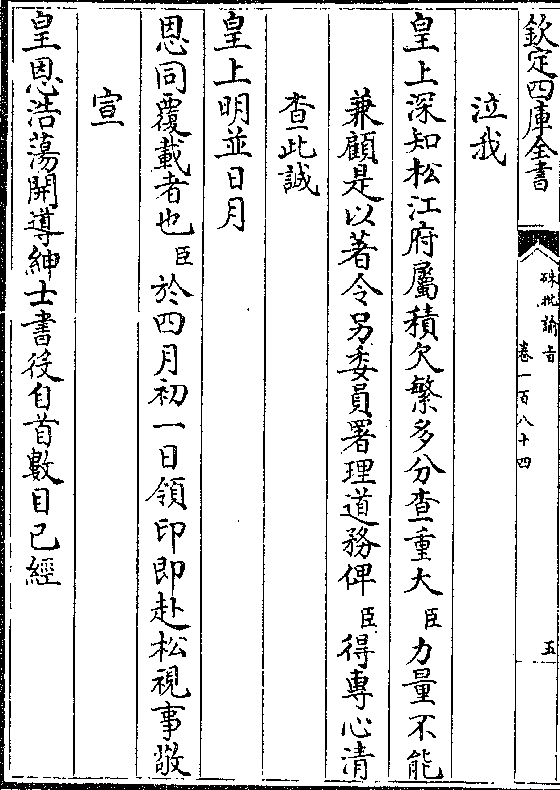 欽定四庫全書
硃批諭旨
卷一百八十四
五
泣我
皇上深知松江府屬積欠繁多分查重大臣力量不能
兼顧是以著令另委員署理道務俾臣得專心清
查此誠
皇上明並日月
恩同覆載者也臣於四月初一日領印即赴松視事敬
宣
皇恩浩蕩開導紳士書役自首數目已經